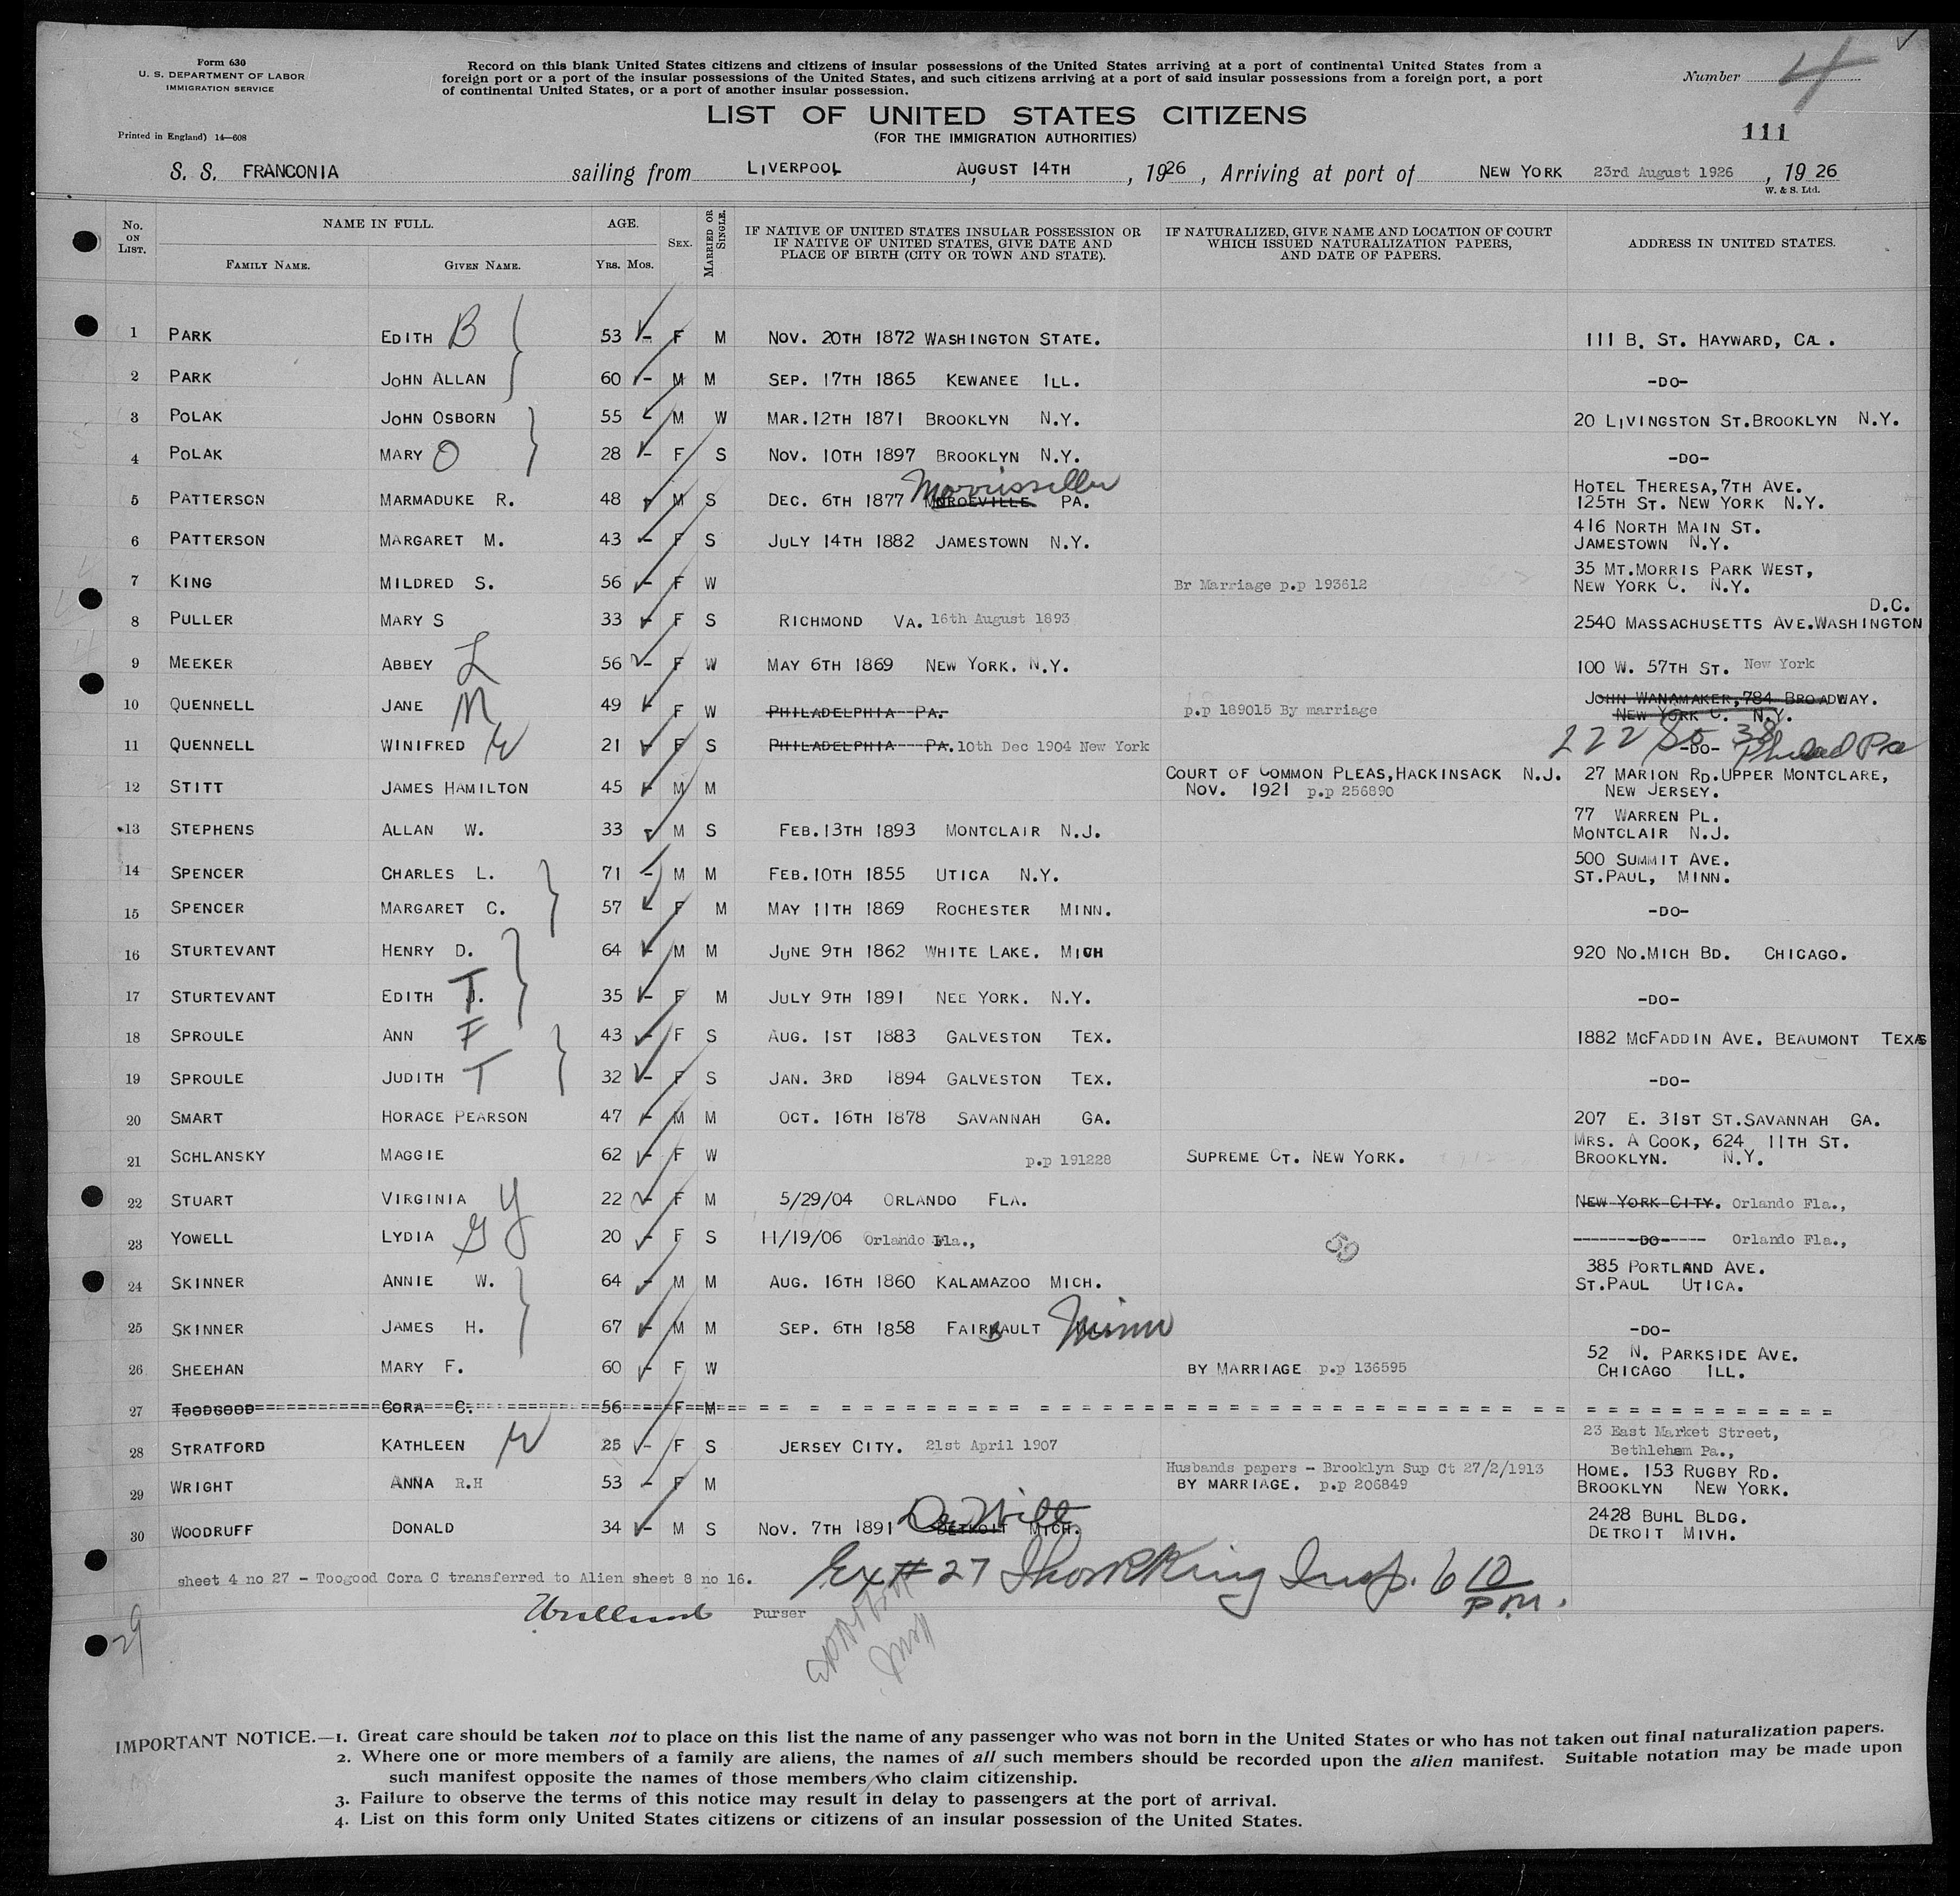 Form 630
U. S. DEPARTMENT OF LABOR
IMMIGRATION SERVICE
Printed in England) 14—608
Record on this blank United States citizens and citizens of insular possessions of the United States arriving at a port of continental United States from a
foreign port or a port of the insular possessions of the United States, and such citizens arriving at a port of said insular possessions from a foreign port, a port
of continental United States, or a port of another insular possession.
Number 4
LIST OF UNITED STATES CITIZENS
(FOR THE IMMIGRATION AUTHORITIES)
111
S. S. FRANCONIA sailing from LIVERPOOL AUGUST 14TH, 1926, Arriving at port of NEW YORK 23rd August 1926, 19 26
W. & S. Ltd.
No. ON LIST. NAME IN FULL. FAMILY NAME. GIVEN NAME. AGE. Yrs. Mos. SEX. MARRIED OR SINGLE. IF NATIVE OF UNITED STATES INSULAR POSSESSION OR IF NATIVE OF UNITED STATES, GIVE DATE AND PLACE OF BIRTH (CITY OR TOWN AND STATE). IF NATURALIZED, GIVE NAME AND LOCATION OF COURT WHICH ISSUED NATURALIZATION PAPERS, AND DATE OF PAPERS. ADDRESS IN UNITED STATES.
1 PARK EDITH B 53 - F M NOV. 20TH 1872 WASHINGTON STATE. 111 B. ST. HAYWARD, CA.
2 PARK JOHN ALLAN 60 - M M SEP. 17TH 1865 KEWANEE ILL. -DO-
3 POLAK JOHN OSBORN 55 - M W MAR.12TH 1871 BROOKLYN N.Y. 20 LIVINGSTON ST.BROOKLYN N.Y.
4 POLAK MARY O 28 - F S NOV. 10TH 1897 BROOKLYN N.Y. -DO-
5 PATTERSON MARMADUKE R. 48 - M S DEC. 6TH 1877 MONROEVILLE Morrisville PA. HOTEL THERESA,7TH AVE.
125TH ST. NEW YORK N.Y.
6 PATTERSON MARGARET M. 43 - F S JULY 14TH 1882 JAMESTOWN N.Y. 416 NORTH MAIN ST.
JAMESTOWN N.Y.
7 KING MILDRED S. 56 - F W Br Marriage p.p 193612 35 MT.MORRIS PARK WEST,
NEW YORK C. N.Y.
8 PULLER MARY S 33 - F S RICHMOND VA. 16th August 1893 2540 MASSACHUSETTS AVE.WASHINGTON D.C.
9 MEEKER ABBEY L 56 - F W MAY 6TH 1869 NEW YORK. N.Y. 100 W. 57TH ST. New York
10 QUENNELL JANE M 49 F W PHILADELPHIA PA. p.p 189015 By marriage JOHN WANAMAKER,784 BROADWAY.
NEW YORK C. N.Y.
11 QUENNELL WINIFRED W 21 - F S PHILADELPHIA PA. 10th Dec 1904 New York -DO- 222 So 38 Philad Pa
12 STITT JAMES HAMILTON 45 - M M COURT OF COMMON PLEAS,HACKINSACK N.J.
NOV. 1921 p.p 256890 27 MARION RD.UPPER MONTCLARE,
NEW JERSEY.
13 STEPHENS ALLAN W. 33 - M S FEB.13TH 1893 MONTCLAIR N.J. 77 WARREN PL.
MONTCLAIR N.J.
14 SPENCER CHARLES L. 71 - M M FEB.10TH 1855 UTICA N.Y. 500 SUMMIT AVE.
ST.PAUL, MINN.
15 SPENCER MARGARET C. 57 - F M MAY 11TH 1869 ROCHESTER MINN. -DO-
16 STURTEVANT HENRY D. 64 - M M JUNE 9TH 1862 WHITE LAKE. MICH 920 NO.MICH BD. CHICAGO.
17 STURTEVANT EDITH T. 35 - F M JULY 9TH 1891 NEE YORK. N.Y. -DO-
18 SPROULE ANN F 43 - F S AUG. 1ST 1883 GALVESTON TEX. 1882 MCFADDIN AVE. BEAUMONT TEXAS
19 SPROULE JUDITH T 32 - F S JAN. 3RD 1894 GALVESTON TEX. -DO-
20 SMART HORACE PEARSON 47 - M M OCT. 16TH 1878 SAVANNAH GA. 207 E. 31ST ST.SAVANNAH GA.
21 SCHLANSKY MAGGIE 62 - F W p.p 191228 SUPREME CT. NEW YORK. MRS. A COOK, 624 11TH ST.
BROOKLYN. N.Y.
22 STUART VIRGINIA Y 22 - F M 5/29/04 ORLANDO FLA. NEW YORK CITY. Orlando Fla.,
23 YOWELL LYDIA G 20 - F S 11/19/06 Orlando Fla., 50 -DO- Orlando Fla.,
24 SKINNER ANNIE W. 64 - M M AUG. 16TH 1860 KALAMAZOO MICH. 385 PORTLAND AVE.
ST.PAUL UTICA.
25 SKINNER JAMES H. 67 - M M SEP. 6TH 1858 FAIRBAULT Minn -DO-
26 SHEEHAN MARY F. 60 - F W BY MARRIAGE p.p 136595 52 N. PARKSIDE AVE.
CHICAGO ILL.
27 TOODGOOD CORA C. 56 F M
28 STRATFORD KATHLEEN W 25 - F S JERSEY CITY. 21st April 1907 23 East Market Street,
Bethlehem Pa.,
29 WRIGHT ANNA R.H 53 - F M Husbands papers - Brooklyn Sup Ct 27/2/1913
BY MARRIAGE. p.p 206849 HOME. 153 RUGBY RD.
BROOKLYN NEW YORK.
30 WOODRUFF DONALD 34 - M S NOV. 7TH 1891 DETROIT DeWitt MICH. 2428 BUHL BLDG.
DETROIT MIVH.
sheet 4 no 27 - Toogood Cora C transferred to Alien sheet 8 no 16.
Ex # 27 King Insp. 6 10 P.M.
Purser
29
IMPORTANT NOTICE.—1. Great care should be taken not to place on this list the name of any passenger who was not born in the United States or who has not taken out final naturalization papers.
2. Where one or more members of a family are aliens, the names of all such members should be recorded upon the alien manifest. Suitable notation may be made upon
such manifest opposite the names of those members who claim citizenship.
3. Failure to observe the terms of this notice may result in delay to passengers at the port of arrival.
4. List on this form only United States citizens or citizens of an insular possession of the United States.